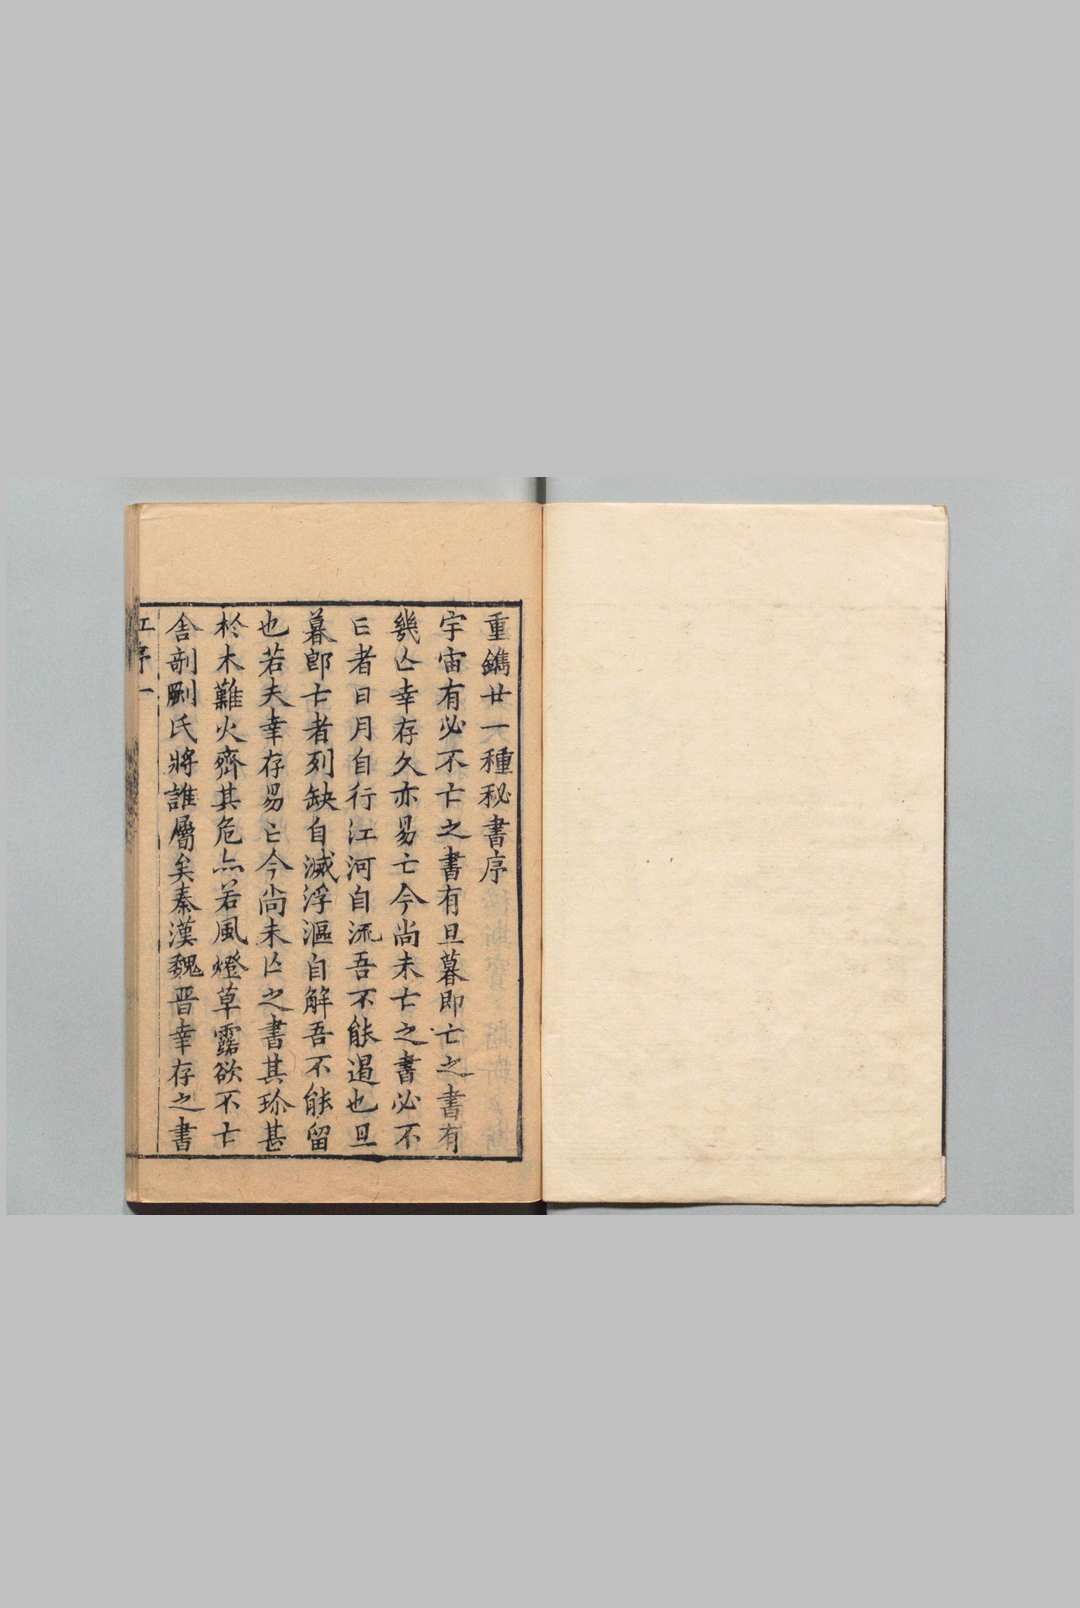 重鐫廿一種秘書序
宇宙有必不亡之書有旦暮即亡之書有
幾亾幸存久亦易亡今尚未亡之書必不
亡者日月自行江河自流吾不能遏也旦
暮即亡者列缺自滅浮漚自解吾不能留
也若夫幸存易亡今尚未亾之書其珎甚
於木難火齊其危亦若風燈草露欲不亡
舍剞劂氏將誰屬矣秦漢魏晋幸存之書
序一